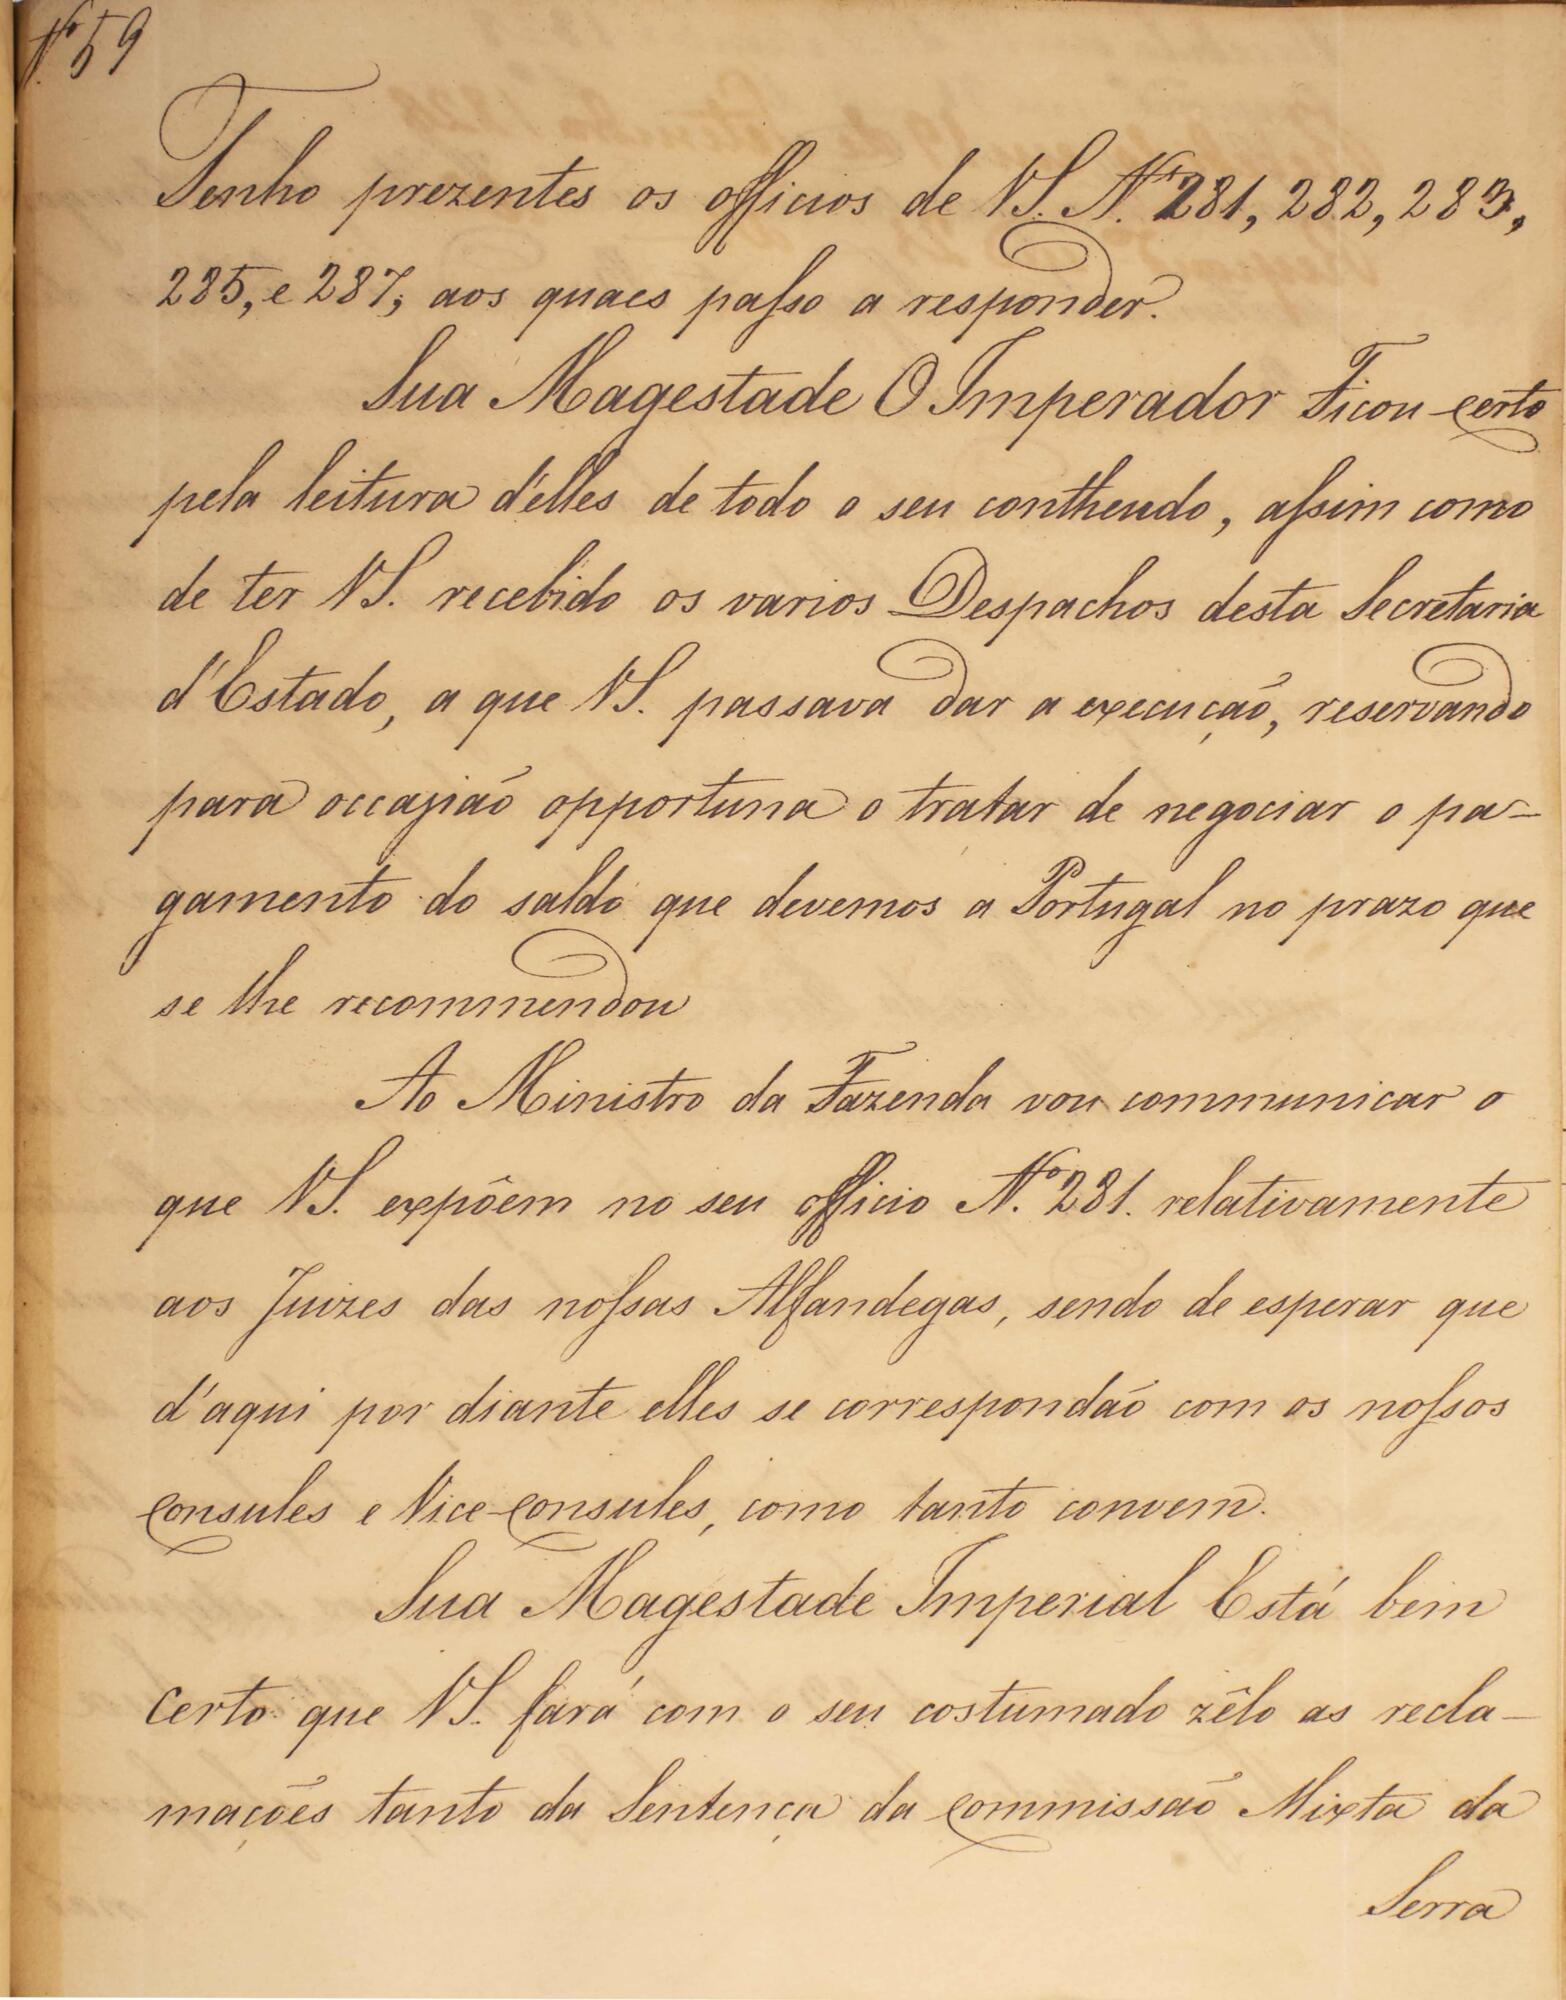 Nº 59
Tenho prezentes os officios de VS. Nos 281, 282, 283,
285, e 287, aos quaes passo a responder.
Sua Magestade O Imperador Ficou certo
pela leitura d'elles de todo o seu contheudo, assim como
de ter VS. recebido os varios Despachos desta Secretaria
d'Estado, a que VS. passava dar a execução, reservando
para occazião opportuna o tratar de negociar o pa-
gamento do saldo que devemos a Portugal no prazo que
se lhe recommendou
Ao Ministro da Fazenda vou communicar o
que VS. expõem no seu officio Nº 281. relativamente
aos Juizes das nossas Alfandegas, sendo de esperar que
d'aqui por diante elles se correspondão com os nossos
Consules e Vice-Consules, como tanto convem.
Sua Magestade Imperial Está bem
certo que VS. fará com o seu costumado zêlo as recla-
mações tanto da Sentença da Commissão Mixta da
Serra